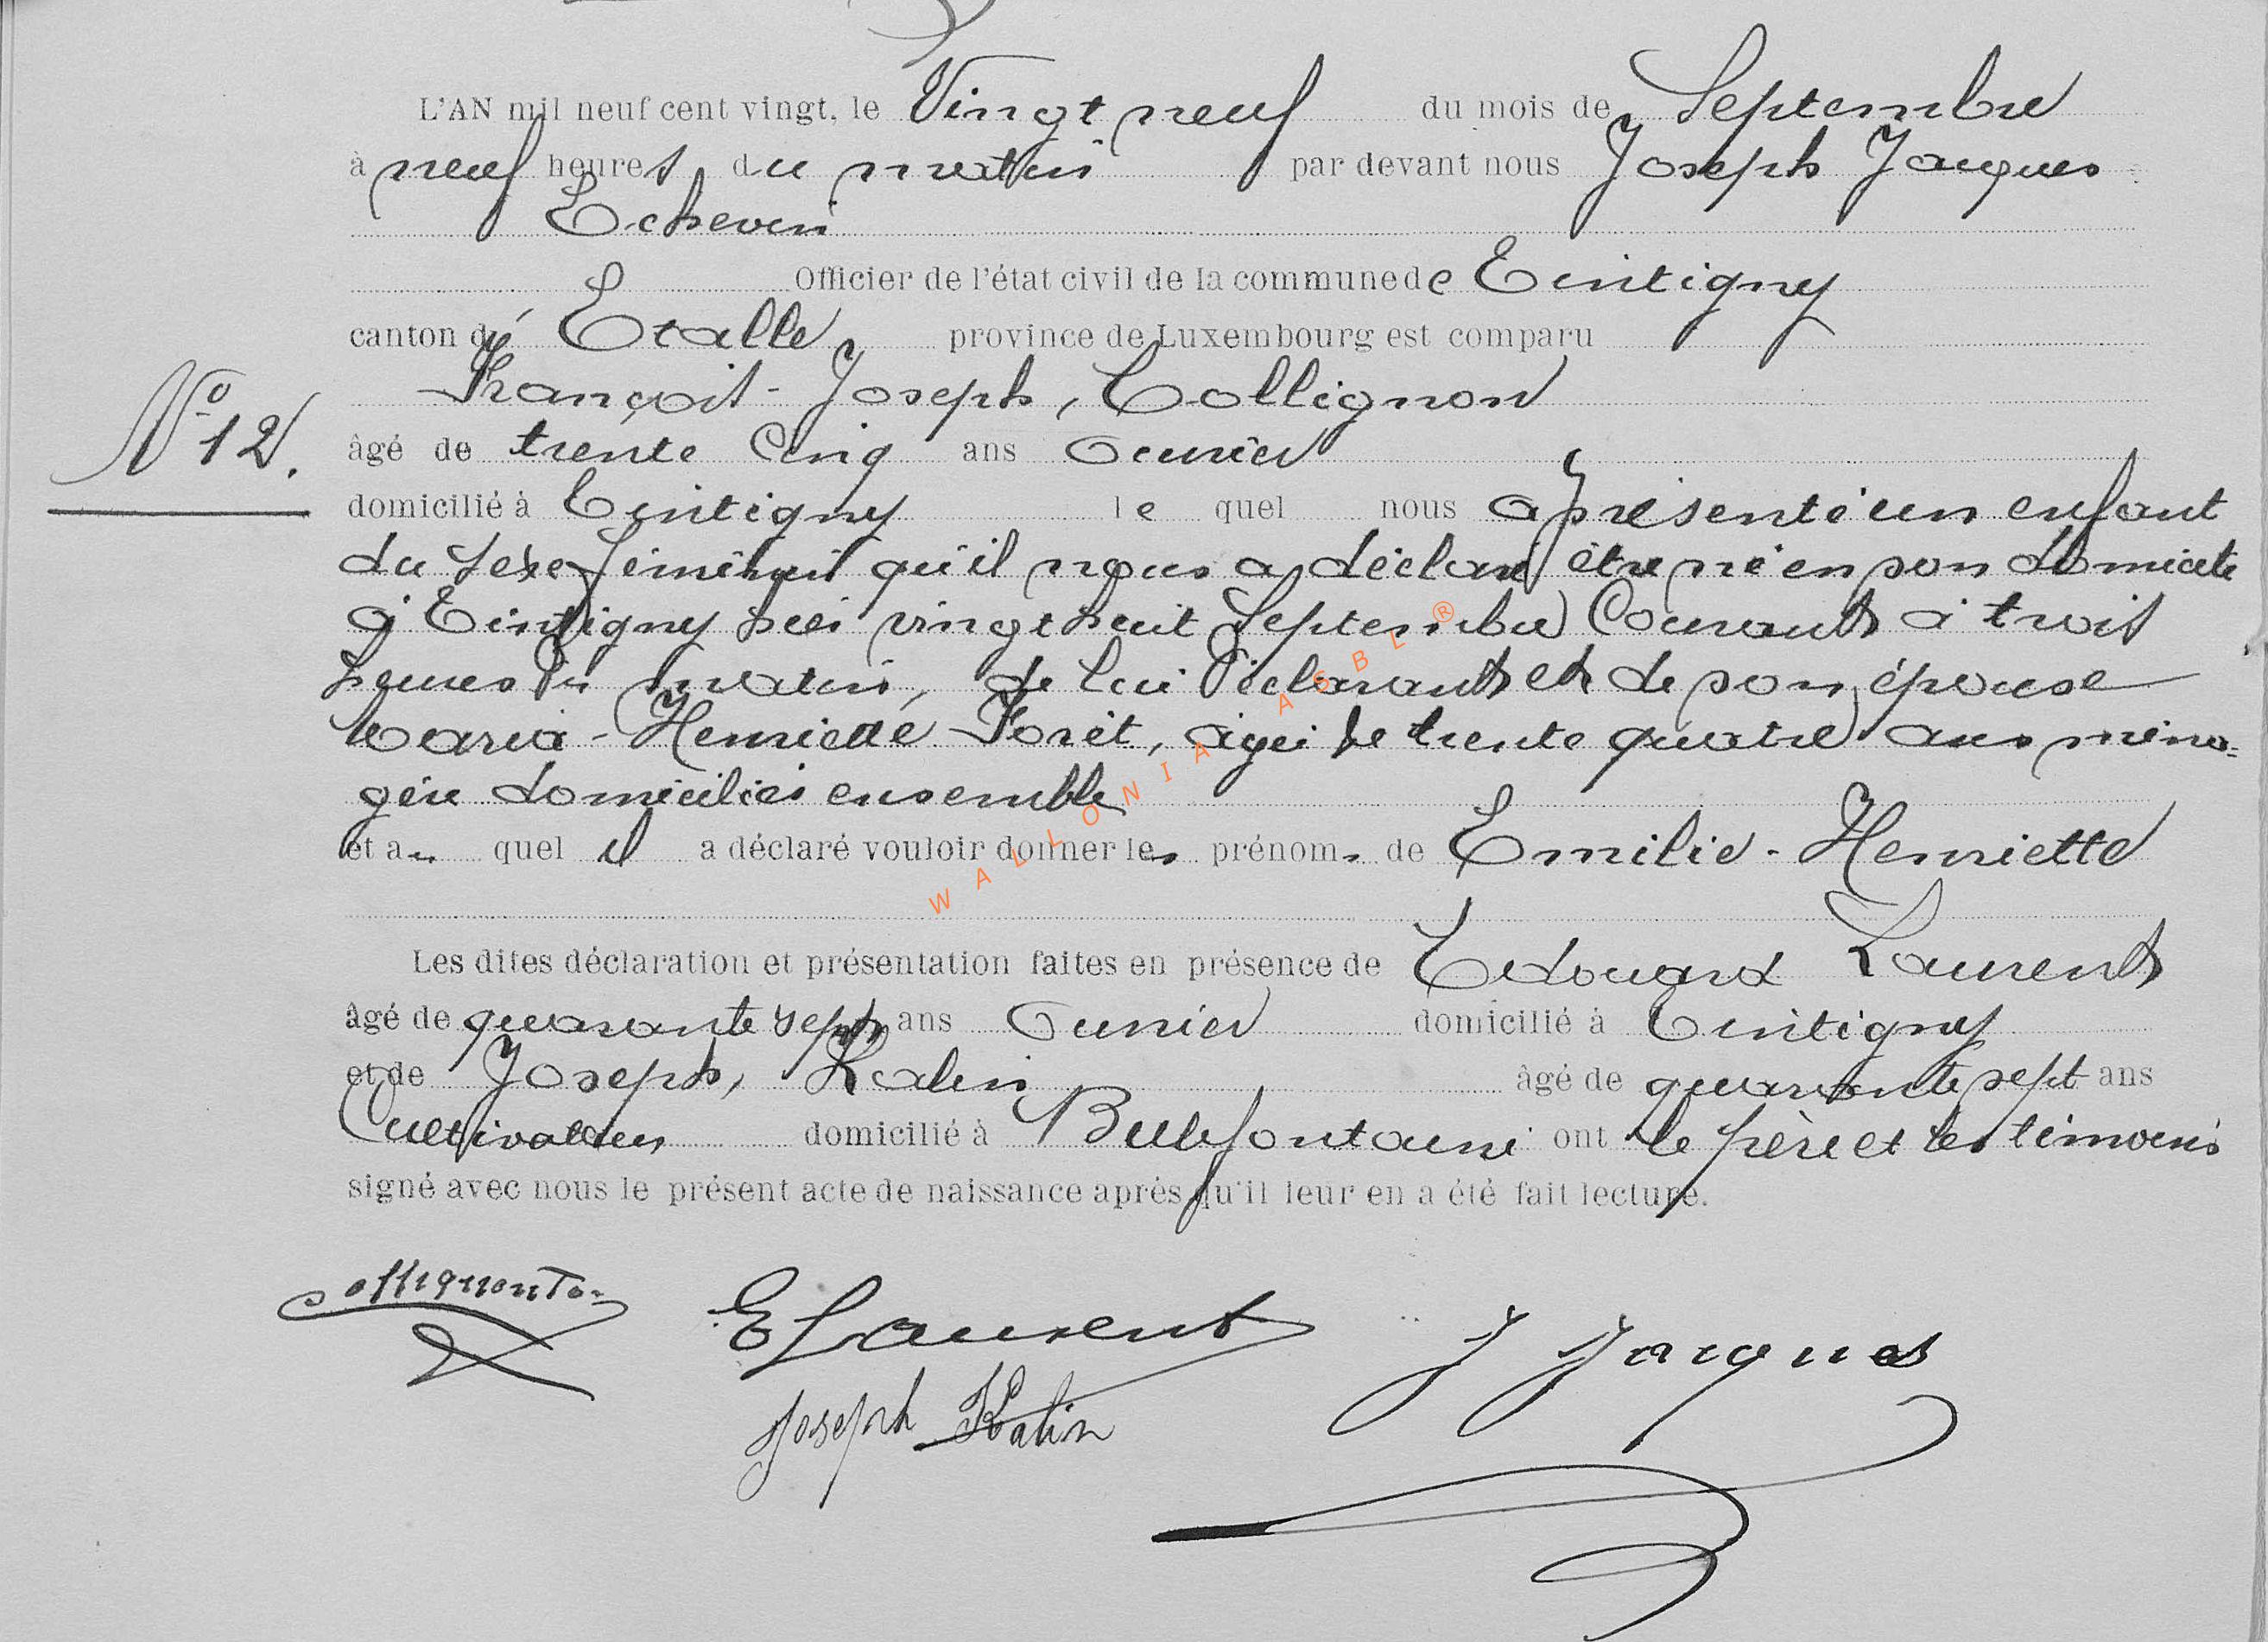 L'AN mil neuf cent vingt, le Vingt neuf du mois de Septembre
à neuf heures du matin par devant nous Joseph Jacques
Echevin
Officier de l'état civil de la commune de Tintigny
canton d'Etalle province de Luxembourg est comparu
François-Joseph, Collignon
N° 12.
âgé de trente cinq ans Ouvrier
domicilié à Tintigny le quel nous a présenté un enfant
du sexe féminin qu'il nous a déclaré être né en son domicile
à Tintigny hier vingt huit Septembre Courant à trois
heures du matin, de lui Déclarant et de son épouse
Maria-Henriette Forêt, âgée de trente quatre ans ména-
gère domiciliés ensemble
et au quel il a déclaré vouloir donner les prénoms de Emilie-Henriette
Les dites déclaration et présentation faites en présence de Edouard Laurent
âgé de quarante sept ans Ouvrier domicilié à Tintigny
et de Joseph, Kalin âgé de quarante sept ans
Cultivateur domicilié à Bellefontaine ont le père et les témoins
signé avec nous le présent acte de naissance après qu'il leur en a été fait lecture.
E Laurent
J Jacques
Joseph Kalin
WALLONIA ASBL ®